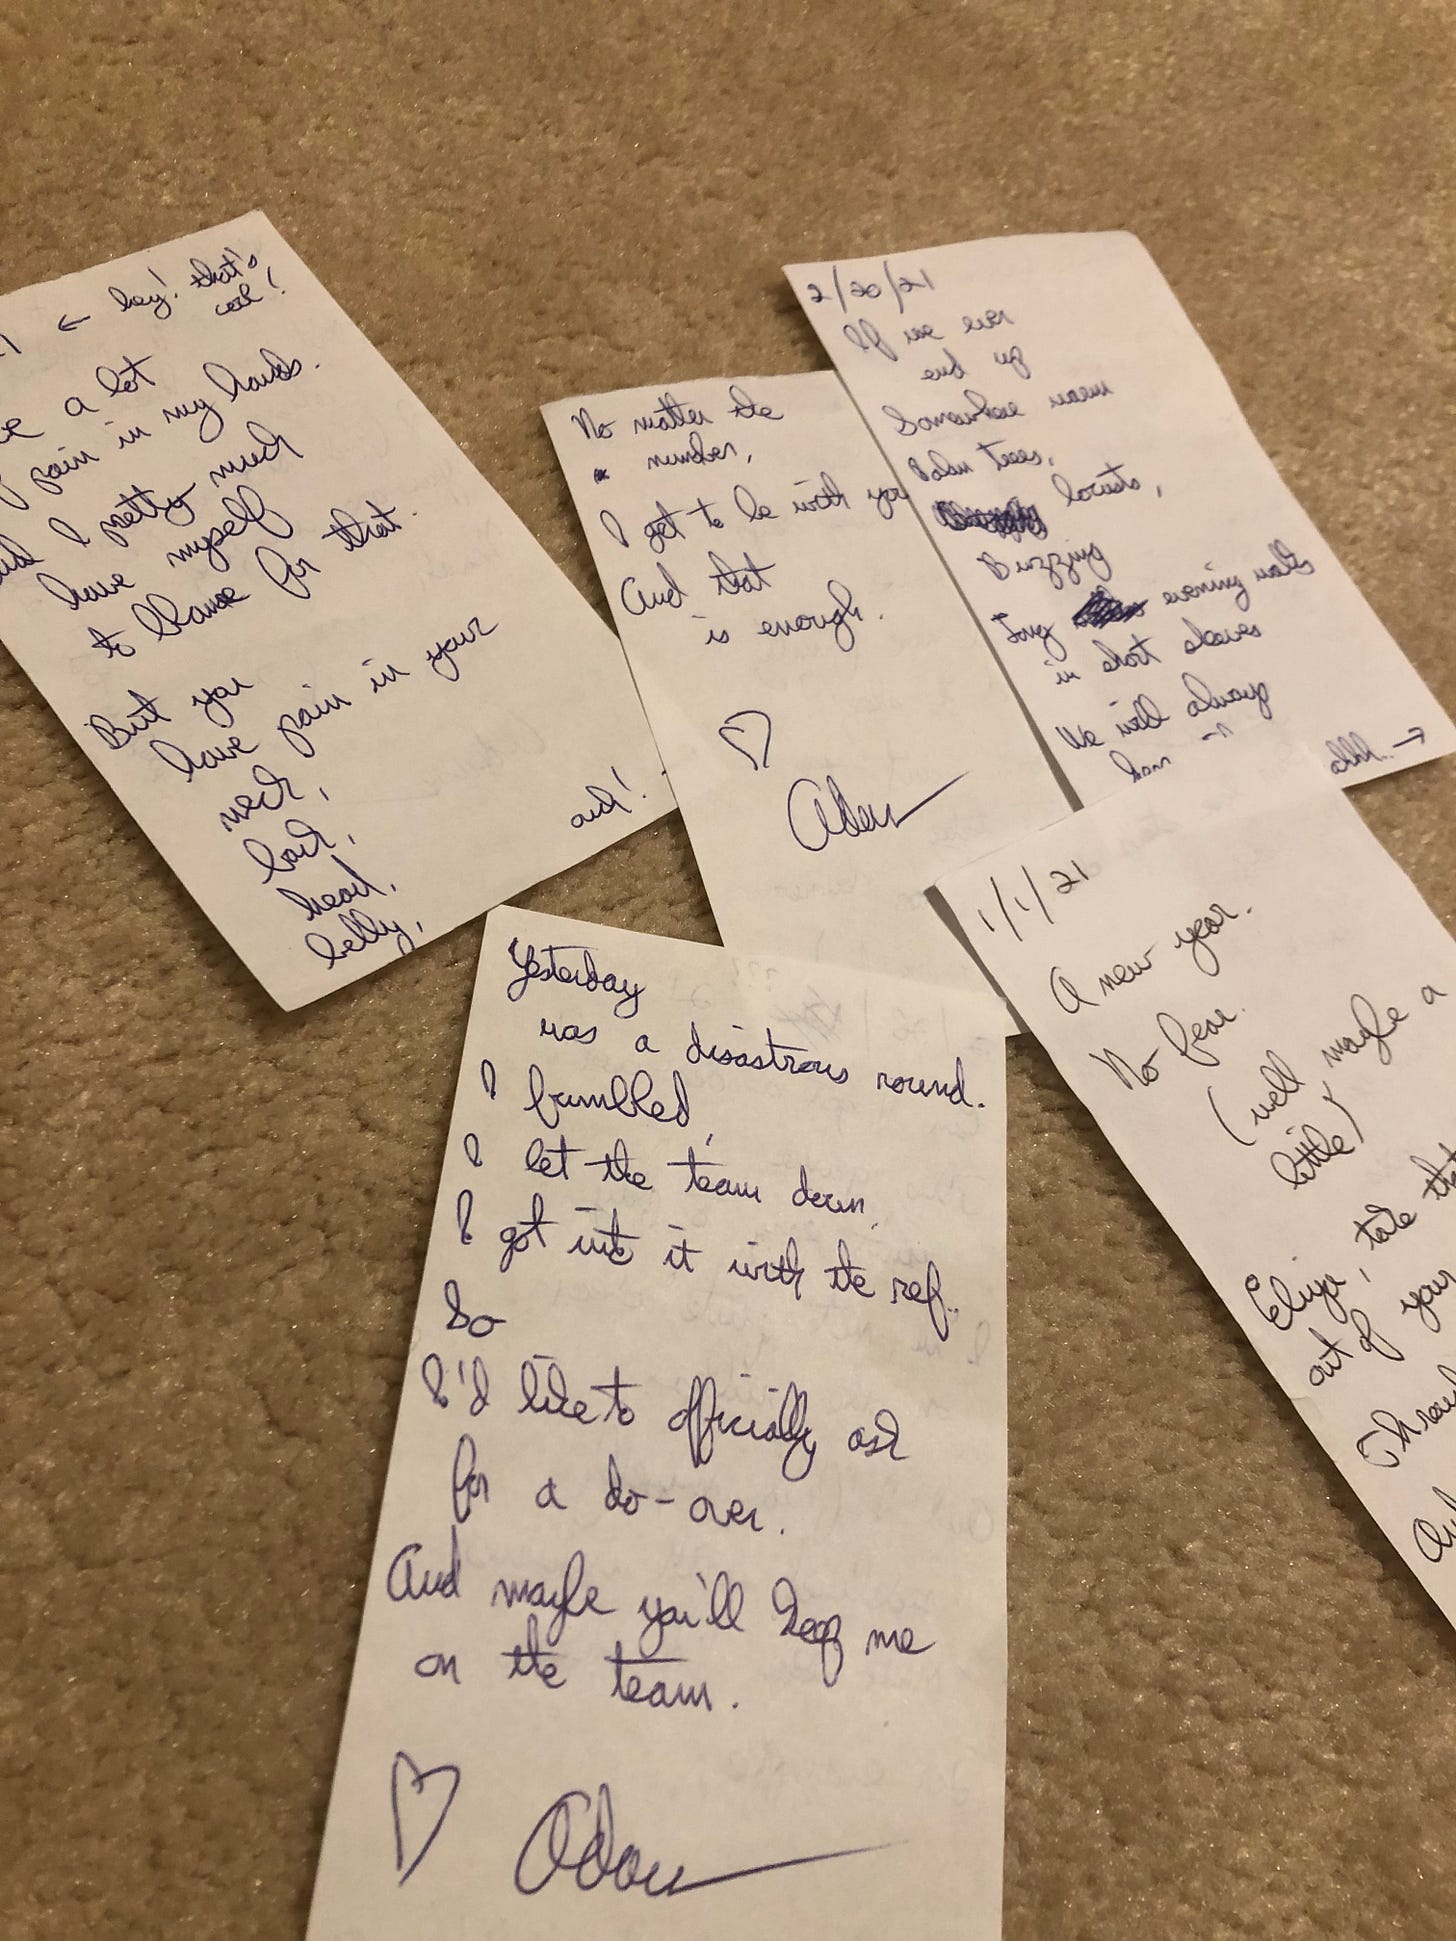 ← hey! that's
cool!
a lot
pain in my hands.
I pretty much
have myself
to blame for that.
But you
have pain in your
neck,
back,
head,
belly,
and!
No matter the
number,
I get to be with you
And that
is enough.
♡
Adam
2/20/21
If we ever
end up
Somewhere warm
Palm trees,
locusts,
Buzzing
Long evening walks
in short sleeves
We will always
have
ahhh..→
1/1/21
A new year.
No fear.
(well maybe a
little)
Eliya, take that
out of your
Yesterday
was a disastrous round.
I fumbled,
I let the team down,
I got into it with the ref..
So
I'd like to officially ask
for a do-over.
And maybe you'll keep me
on the team.
♡ Adam